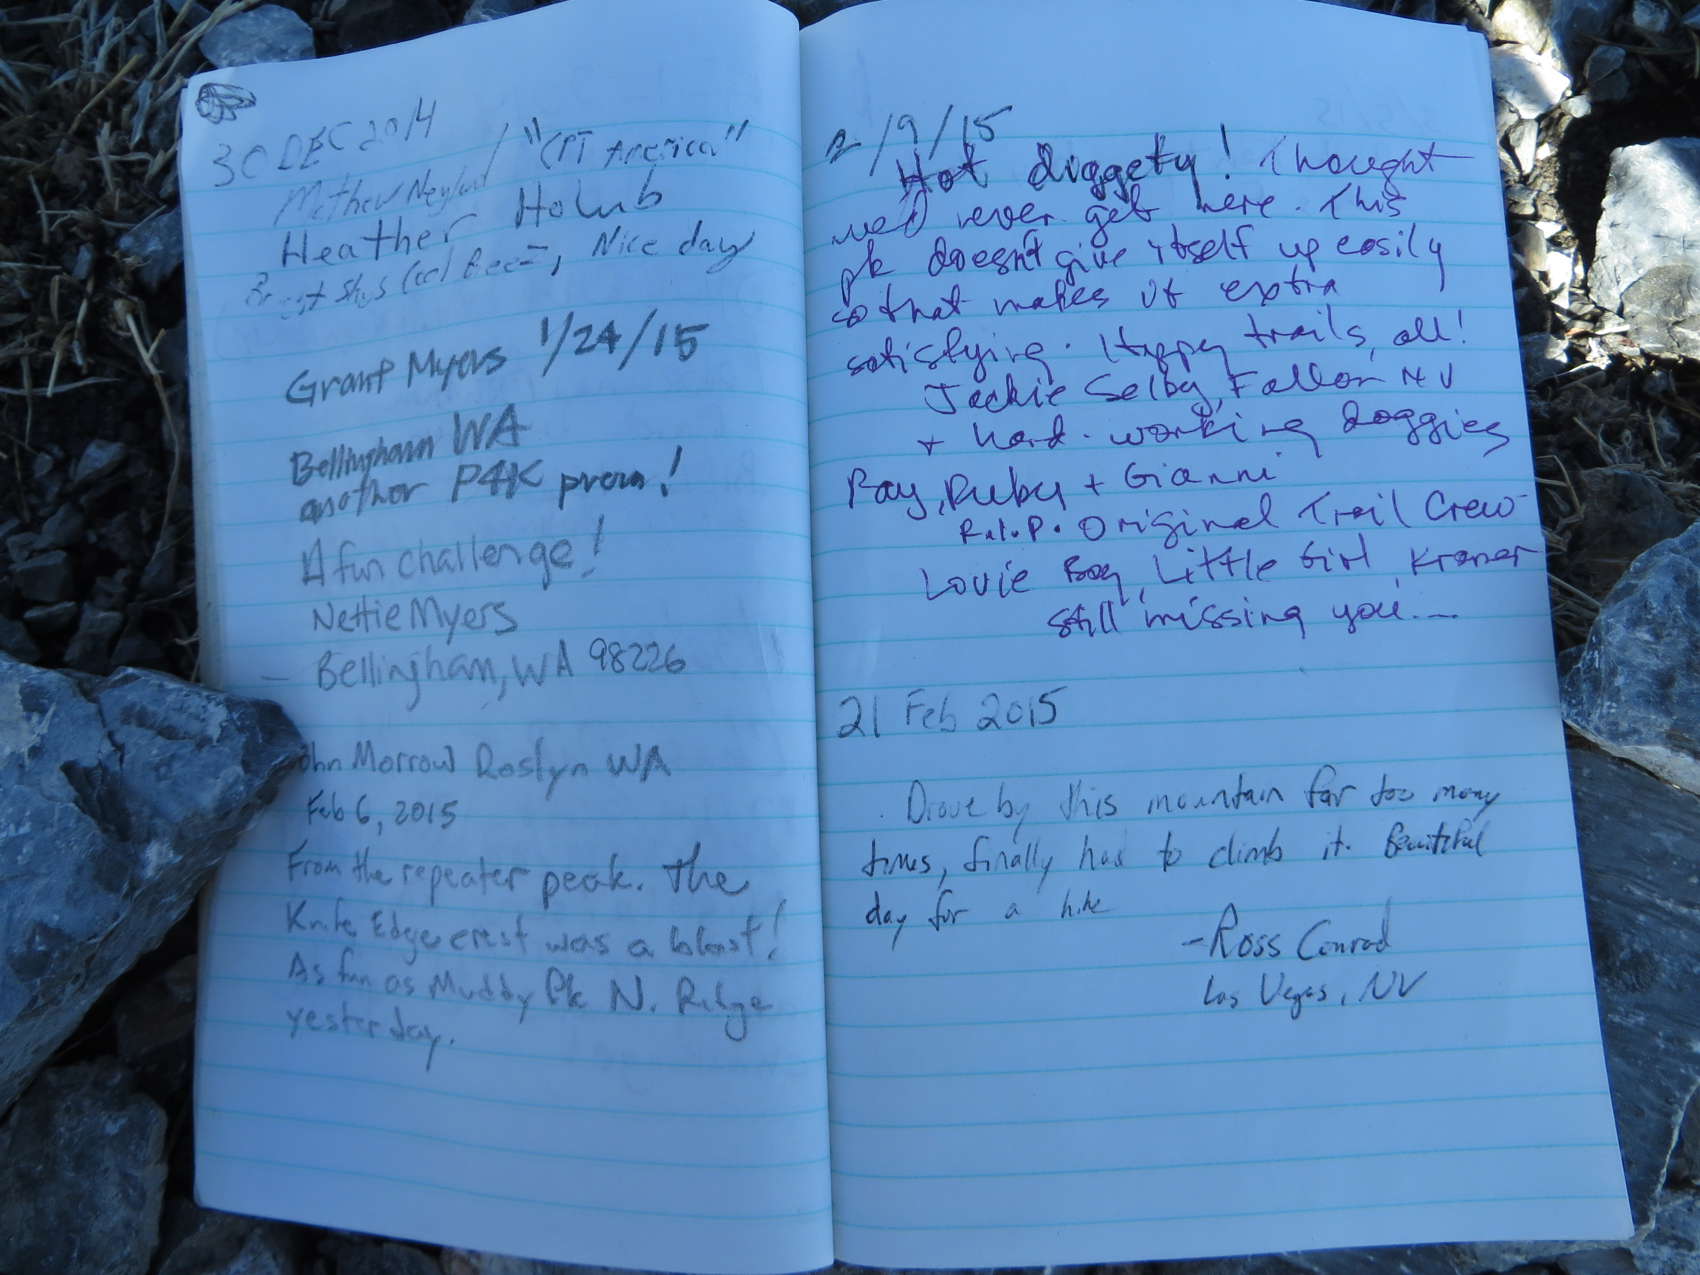 30 DEC 2014
"CPT America"
Heather Holub
Nice day
Grant Myers 1/24/15
Bellingham WA
another P4K prom!
A fun challenge!
Nettie Myers
Bellingham, WA 98226
John Morrow Roslyn WA
Feb 6, 2015
From the repeater peak. The
Knife Edge crest was a blast!
As fun as Muddy Pk N. Ridge
yesterday.
2/9/15
Hot diggety! Thought
we'd never get here. This
pk doesn't give itself up easily
so that makes it extra
satisfying. Happy trails, all!
Jackie Selby, Fallon NV
+ hard-working doggies
Ray, Ruby + Gianni
R.I.P. Original Trail Crew
Louie Boy, Little Girl, Kramer
still missing you....
21 Feb 2015
Drove by this mountain far too many
times, finally had to climb it. Beautiful
day for a hike
-Ross Conrad
Las Vegas, NV